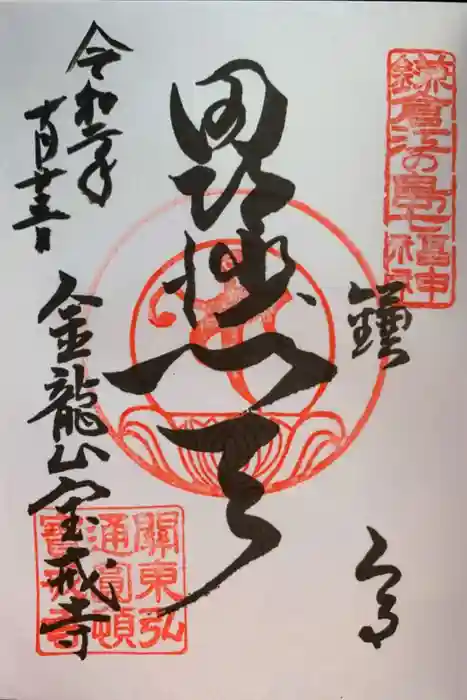 鎌倉江の島七福神
鎌倉
毘沙門天
令和二年
十月廿五日
金龍山宝戒寺
關東弘
通圓頓
寶戒寺